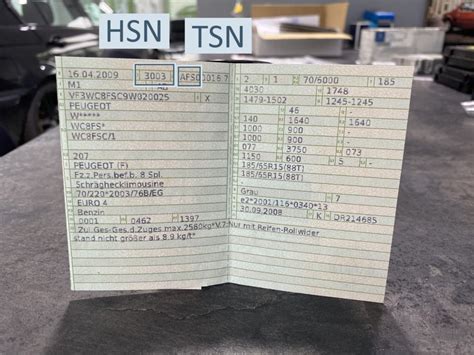 HSN TSN
16.04.2009 3003 AFS00016 7
M1
VF3WC8FSC9W020025 X
PEUGEOT
W*****
WC8FS*
WC8FSC/1
207
PEUGEOT (F)
Fz.z.Pers.bef.b. 8 Spl.
Schräghecklimousine
70/220*2003/76B/EG
EURO 4
Benzin
0001 0462 1397
Zul.Ges-Ges.d.Zuges max.2580kg*V.7:Nur mit Reifen-Rollwider
stand nicht größer als 8.9 kg/t*
2 1 70/6000 185
4030 1748
1479-1502 1245-1245
46
140 1640 1640
1000 900
1000 900
077 3750 073
1150 600 5 -
185/65R15(88T)
185/65R15(88T)
Grau 7
e2*2001/116*0340*13
30.09.2008 K DR214685